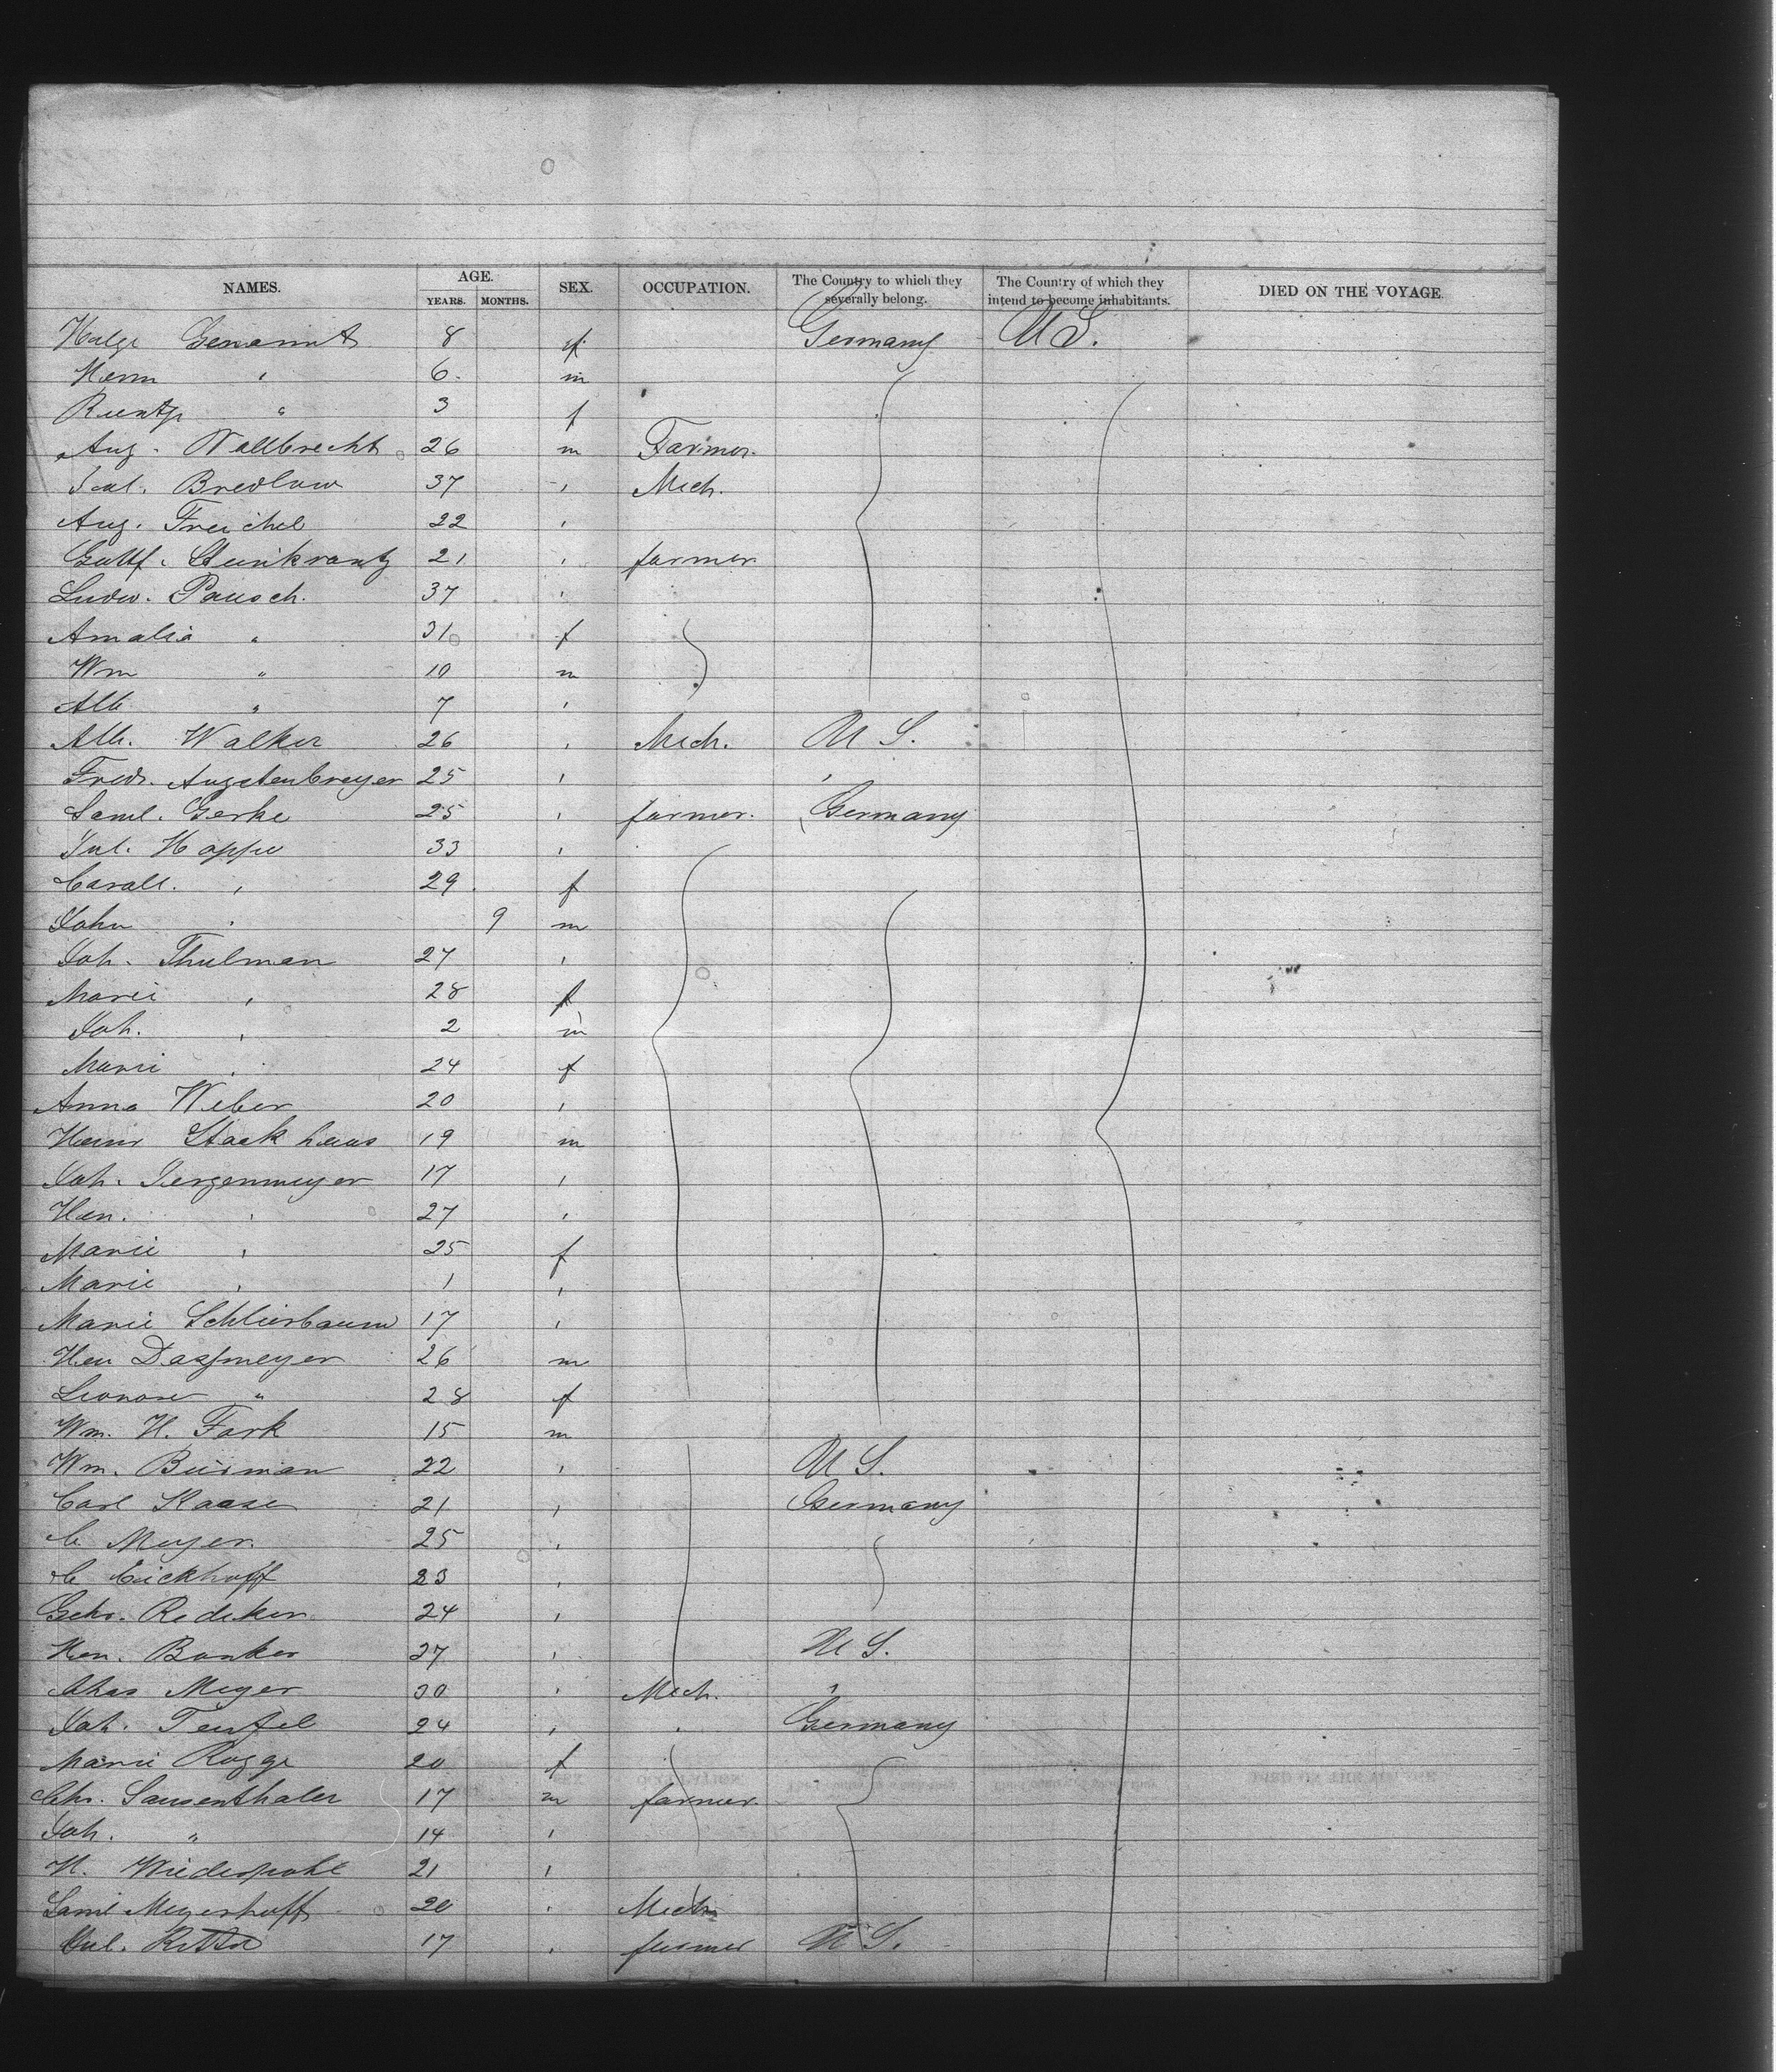 NAMES. AGE. SEX. OCCUPATION. The Country to which they severally belong. The Country of which they intend to become inhabitants. DIED ON THE VOYAGE.
YEARS. MONTHS.
8 f Germany U S.
Herm " 6. m
" 3 f
Aug. Wallbrecht 26 m Farmer.
Jul. Bredlow 37 " Mech.
Aug. Freichel 22 "
Gottf. 21 " farmer.
Ludw. Pausch. 37 "
Amalia " 31 f
Wm " 10 m
Alb " 7 "
Alb. Walker 26 " Mech. U S.
Fredr. Augstenbreyer 25 " "
Saml. Gerke 25 " farmer. Germany
Jul. Hoppe 33 "
" 29 f
John " 9 m
Joh. Thulman 27 "
Marie " 28 f
Joh. " 2 m
Marie " 24 f
Anna Weber 20 "
Heinr Stackhaus 19 m
Joh. Jergenmeyer 17 "
Hen. " 27 "
Marie " 25 f
Marie " 1 "
Marie Schlierbaum 17 "
Hen Dassmeyer 26 m
Leonore " 28 f
Wm. H. Fark 15 m
Wm. Buirman 22 " U S.
Carl Kaase 21 " Germany
C. Meyer. 25 "
C. Eickhoff 23 "
Gehr. Redeker 24 "
Hen. Banker 27 " U S.
Chas Meyer 30 " Mech. "
Joh. Teufel 24 " " Germany
Marie Rugge 20 f
Chr. Sausenthaler 17 m farmer.
Joh. " 14 "
H. Wiederpohl 21 "
Saml Meyerhoff 20 " Mech
Jul. Ritter 17 " farmer U S.